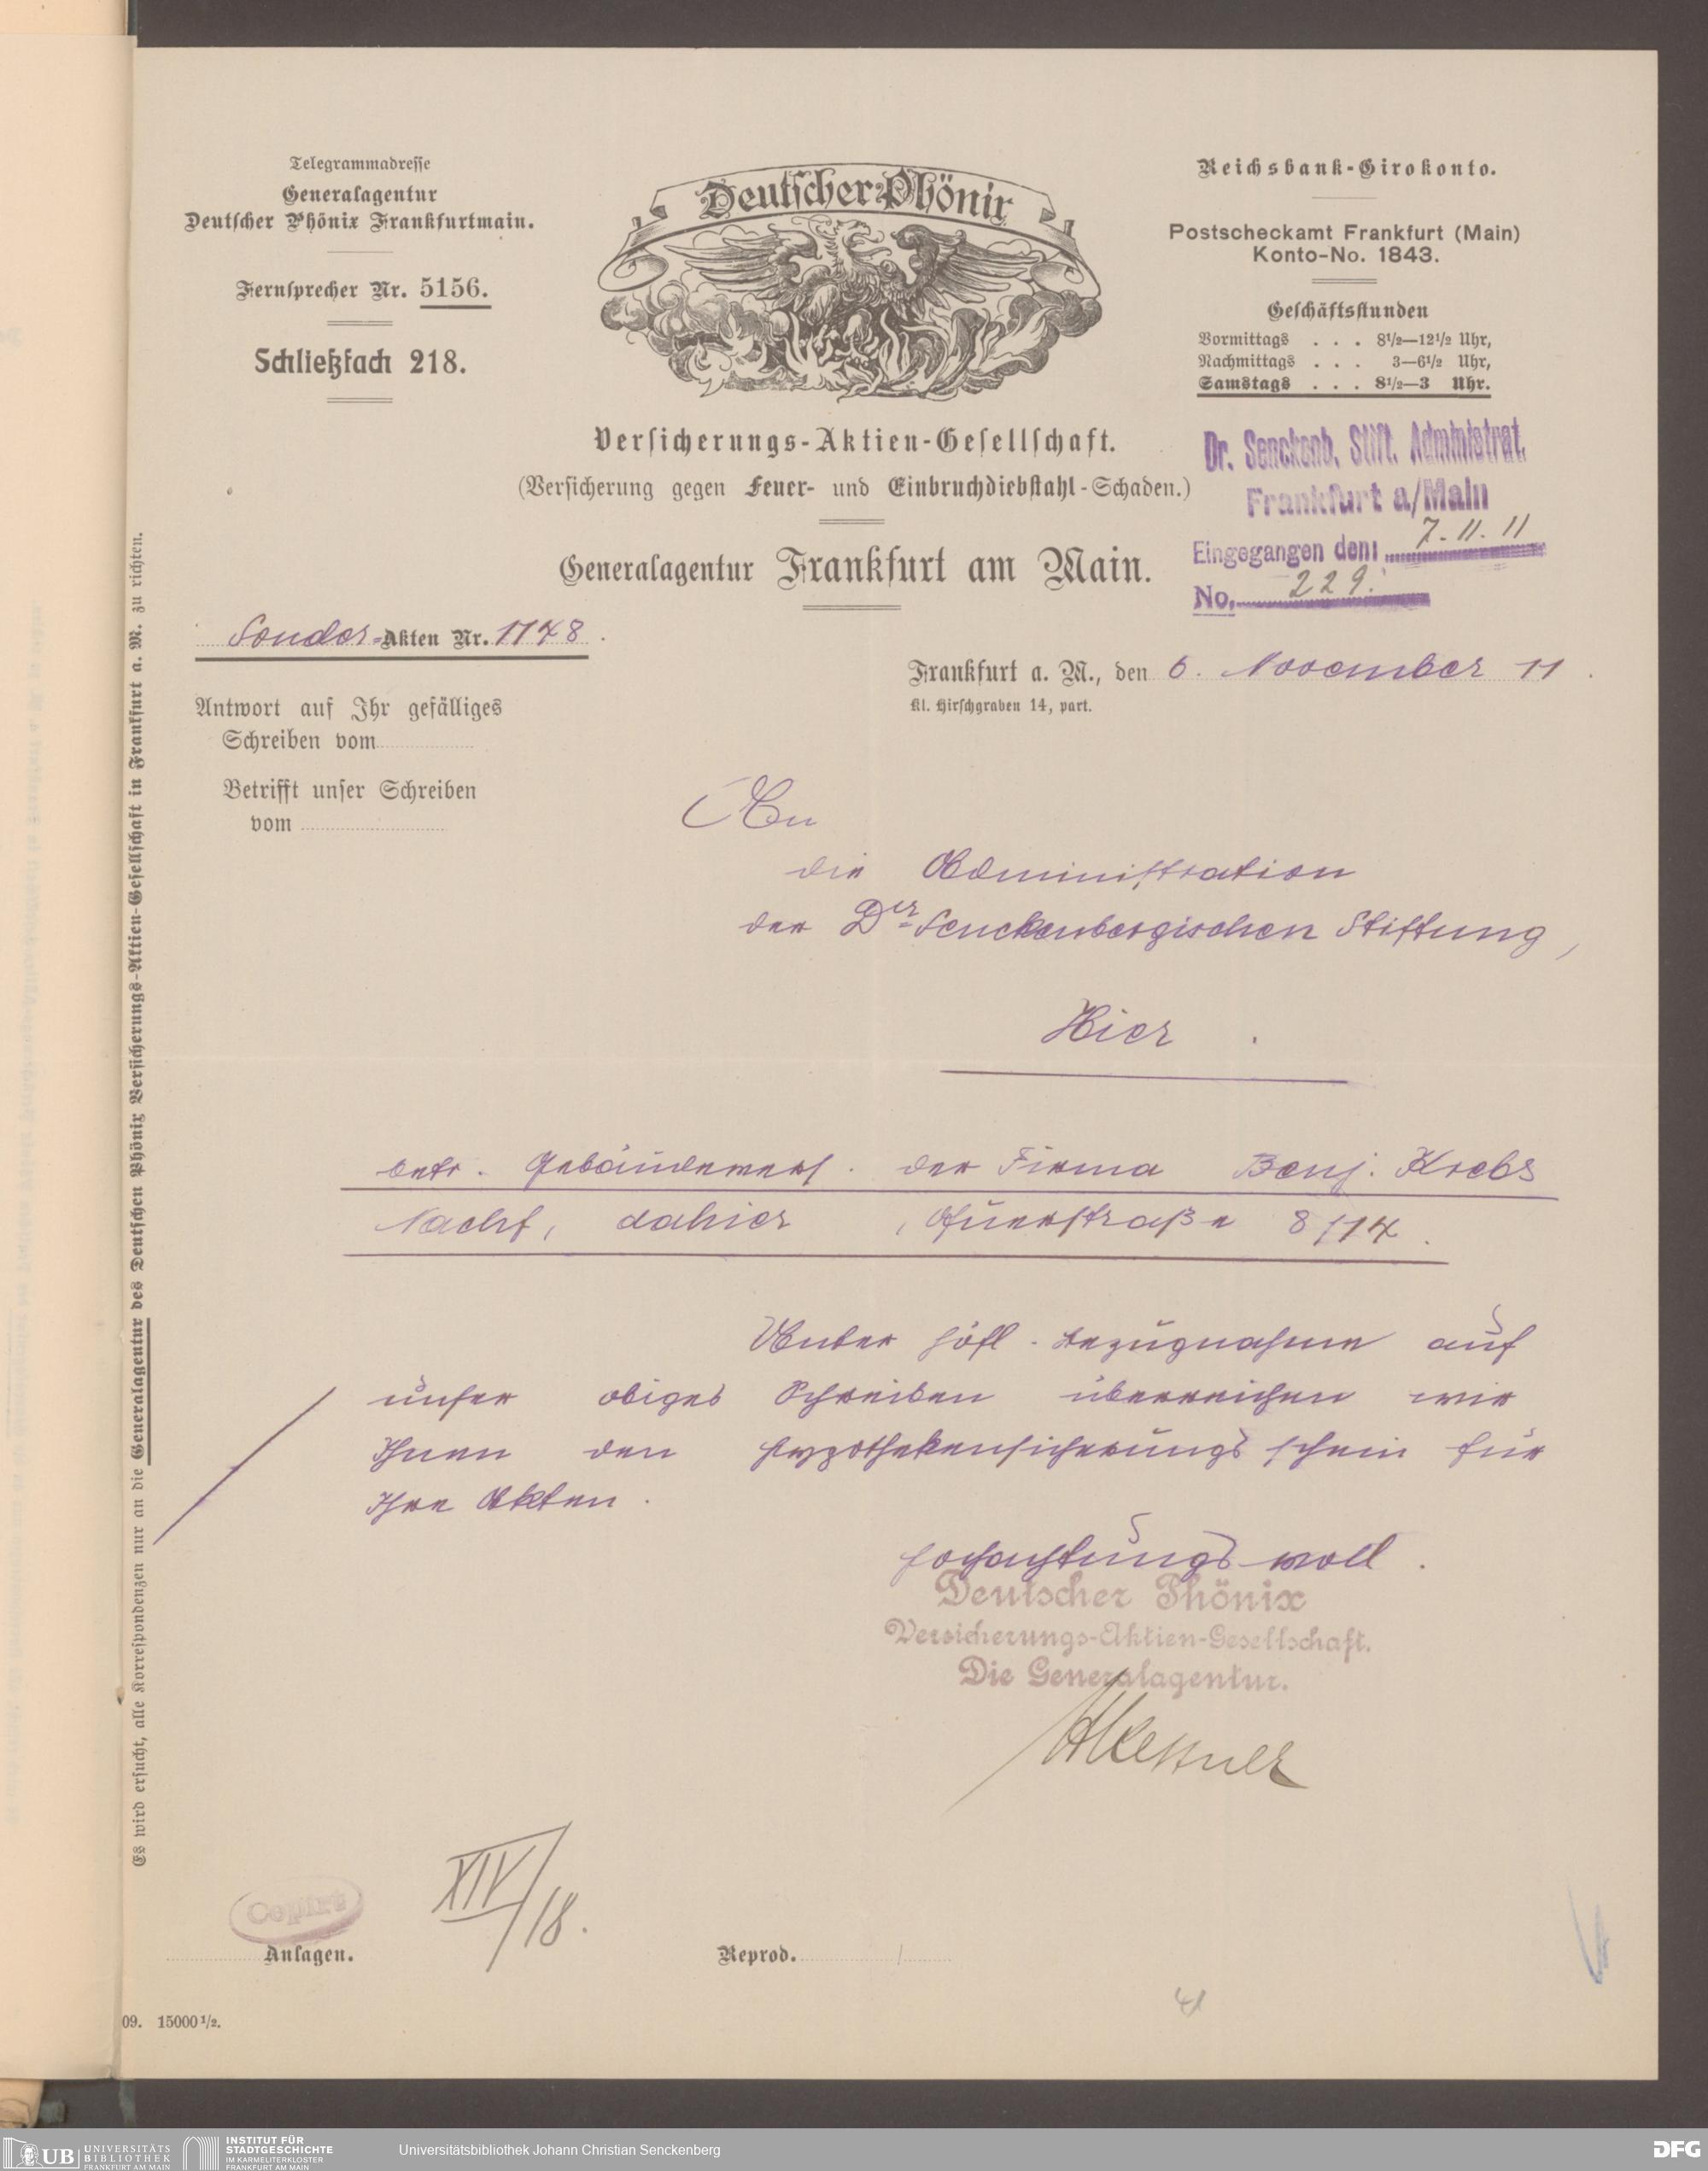 Telegrammadresse
Generalagentur
Deutscher Phönix Frankfurtmain.
Fernsprecher Nr. 5156.
Schließfach 218.
Deutscher Phönix
Versicherungs-Aktien-Gesellschaft.
(Versicherung gegen Feuer- und Einbruchdiebstahl-Schaden.)
Generalagentur Frankfurt am Main.
Reichsbank-Girokonto.
Postscheckamt Frankfurt (Main)
Konto-No. 1843.
Geschäftsstunden
Vormittags . . . 8½—12½ Uhr,
Nachmittags . . . 3—6½ Uhr,
Samstags . . . 8½—3 Uhr.
Dr. Senckenb. Stift. Administrat.
Frankfurt a/Main
Eingegangen den: 7.11.11
No. 229.
Sonder-Akten Nr. 1148.
Frankfurt a. M., den 6. November 11.
Kl. Hirschgraben 14, part.
Antwort auf Ihr gefälliges
Schreiben vom
Betrifft unser Schreiben
vom
An
die Administration
der Dr Senckenbergischen Stiftung,
Hier.
betr. Gebäudevers. der Firma Benj. Krebs
Nachf, dahier, 8/14.
Unter höfl. Bezugnahme auf
unser obiges Schreiben überreichen wir
Ihnen den Hypothekensicherungsschein für
Ihre Akten.
Hochachtungsvoll.
Deutscher Phönix
Versicherungs-Aktien-Gesellschaft.
Die Generalagentur.
Copirt
XIV/18.
Anlagen.
Reprod.
09. 15000½.
Es wird ersucht, alle Korrespondenzen nur an die Generalagentur des Deutschen Phönix Versicherungs-Aktien-Gesellschaft in Frankfurt a. M. zu richten.
UB UNIVERSITÄTS
BIBLIOTHEK
FRANKFURT AM MAIN
INSTITUT FÜR
STADTGESCHICHTE
IM KARMELITERKLOSTER
FRANKFURT AM MAIN
Universitätsbibliothek Johann Christian Senckenberg
DFG